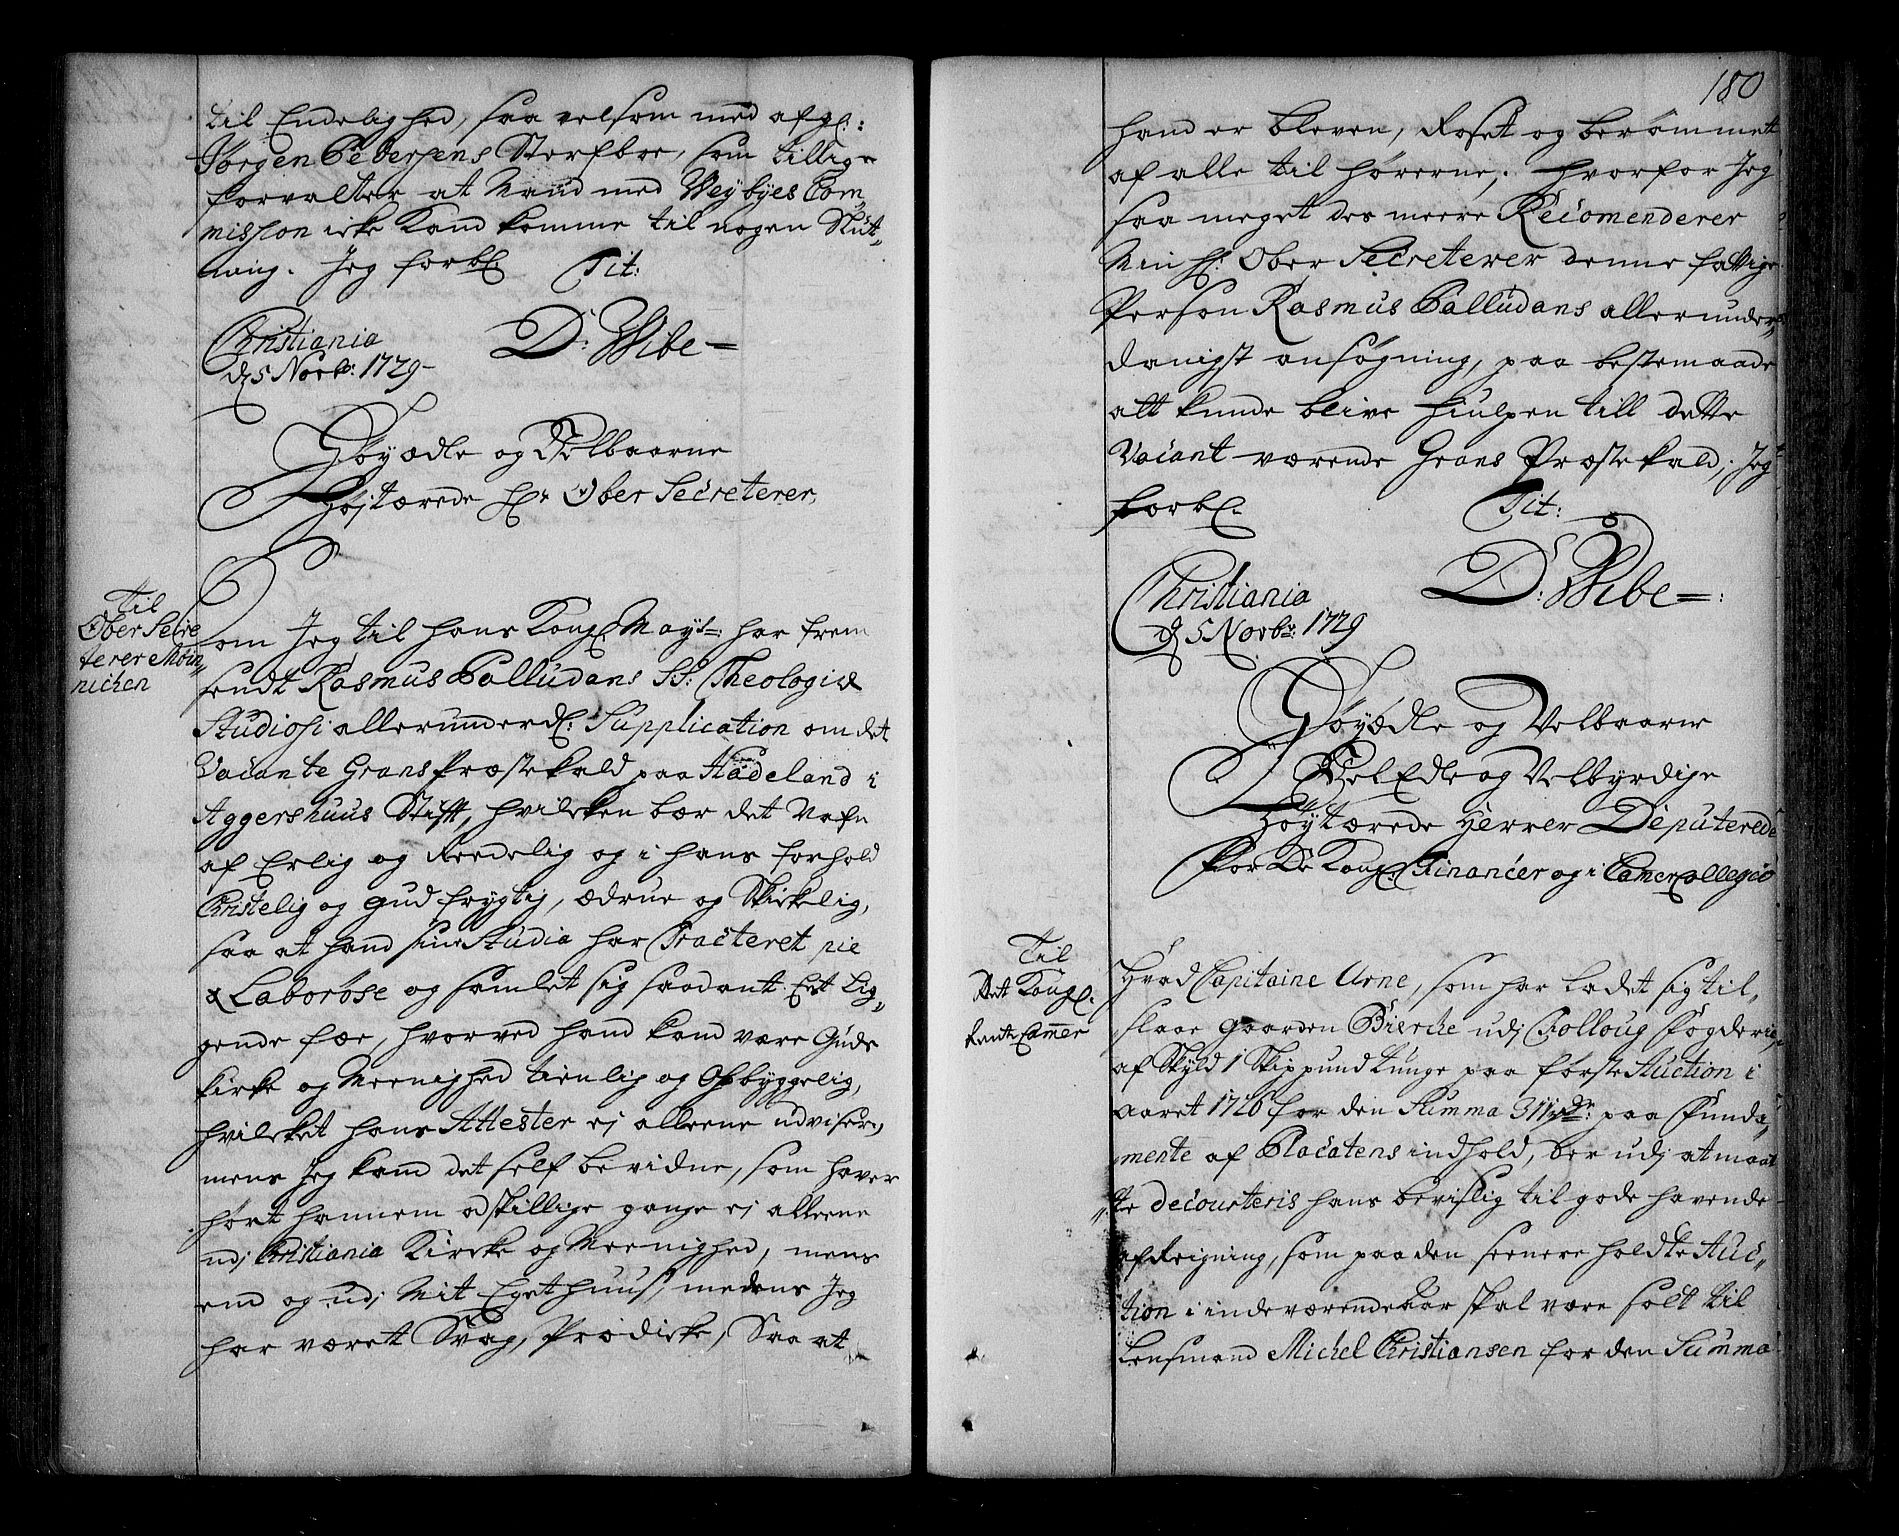 til Endelighed, saa velsom med afg:
Jørgen Pedersens Sterfboe, som tillige
forvalter at Mand med Weybyes Com„
mission icke Kand komme til nogen Slut„
ning. Jeg forbl. Tit:
Christiania
d 5 Novbr: 1729 –
D: Wibe =
Høyædle og Velbaarne
Høstærede Hr Ober Secreterer,
Til
Ober Secre
terer Møin„
nichen
Som Jeg til hans Kongl. Mayts: har frem
sendt Rasmus Palludans SS: Theologiæ
Studiosi allerunderd: Supplication om det
Vacante Grans Præstekald paa Hadeland i
Aggershuus Stift, hvilcken bær det Nafn
af Erlig og Reedelig og i hans forhold
Christelig og gudfrygtig, ædrue og Skickelig,
saa at hand sine Studia har Tracteret pie
& Laborose og samlet sig saadant Eet lig„
gende fæe, hvorved hand kand være Guds
Kirke og Meenighed tienlig og Opbyggelig,
hvilcket hans Attester ej alleene udviser,
mens Jeg kand det self bevidne, som haver
hørt hannem adskillige gange ej alleene
udj Christiania Kircke og Meenighed, mens
end og udj Mit Eget huus, medens Jeg
har været Svag, Prædicke, Saa at
180
hand er bleven, Roset og berømmet
af alle til hørerne; hvorfor Jeg
saa meget des meere Recomenderer
Min Hr. Ober Secreterer denne fattige
Person Rasmus Palludans allerunder„
danigst ansøgning, paa beste maade
att kunde blive hiulpen till dette
Vacant værende Grans Præstekald; Jeg
forbl. Tit:
D: Wibe =:
Christiania
d 5 Novbr: 1729
Høyædle og Velbaarne
Vel Edle og Velbyrdige
Høytærede Herrer Deputerede
for De Kongl. Financer og i Camer Collegio
Til
Det Kongl.
Rente Camer
Hvad Capitaine Arne, som har ladet sig til„
slaae gaarden Biercke udj Folloug Fogderie
af Skyld 1 Skippund tunge paa første Auction i
aaret 1726 for den Summa 311 rdr: paa Funda„
mente af Placatens indhold, ber udj at maat
te decourteris hans bevislig tilgode havende
afReigning, som paa den seenere holdte Auc„
tion i indeværende Aar skal være solt til
Lensmand Michel Christiansen for den Summa